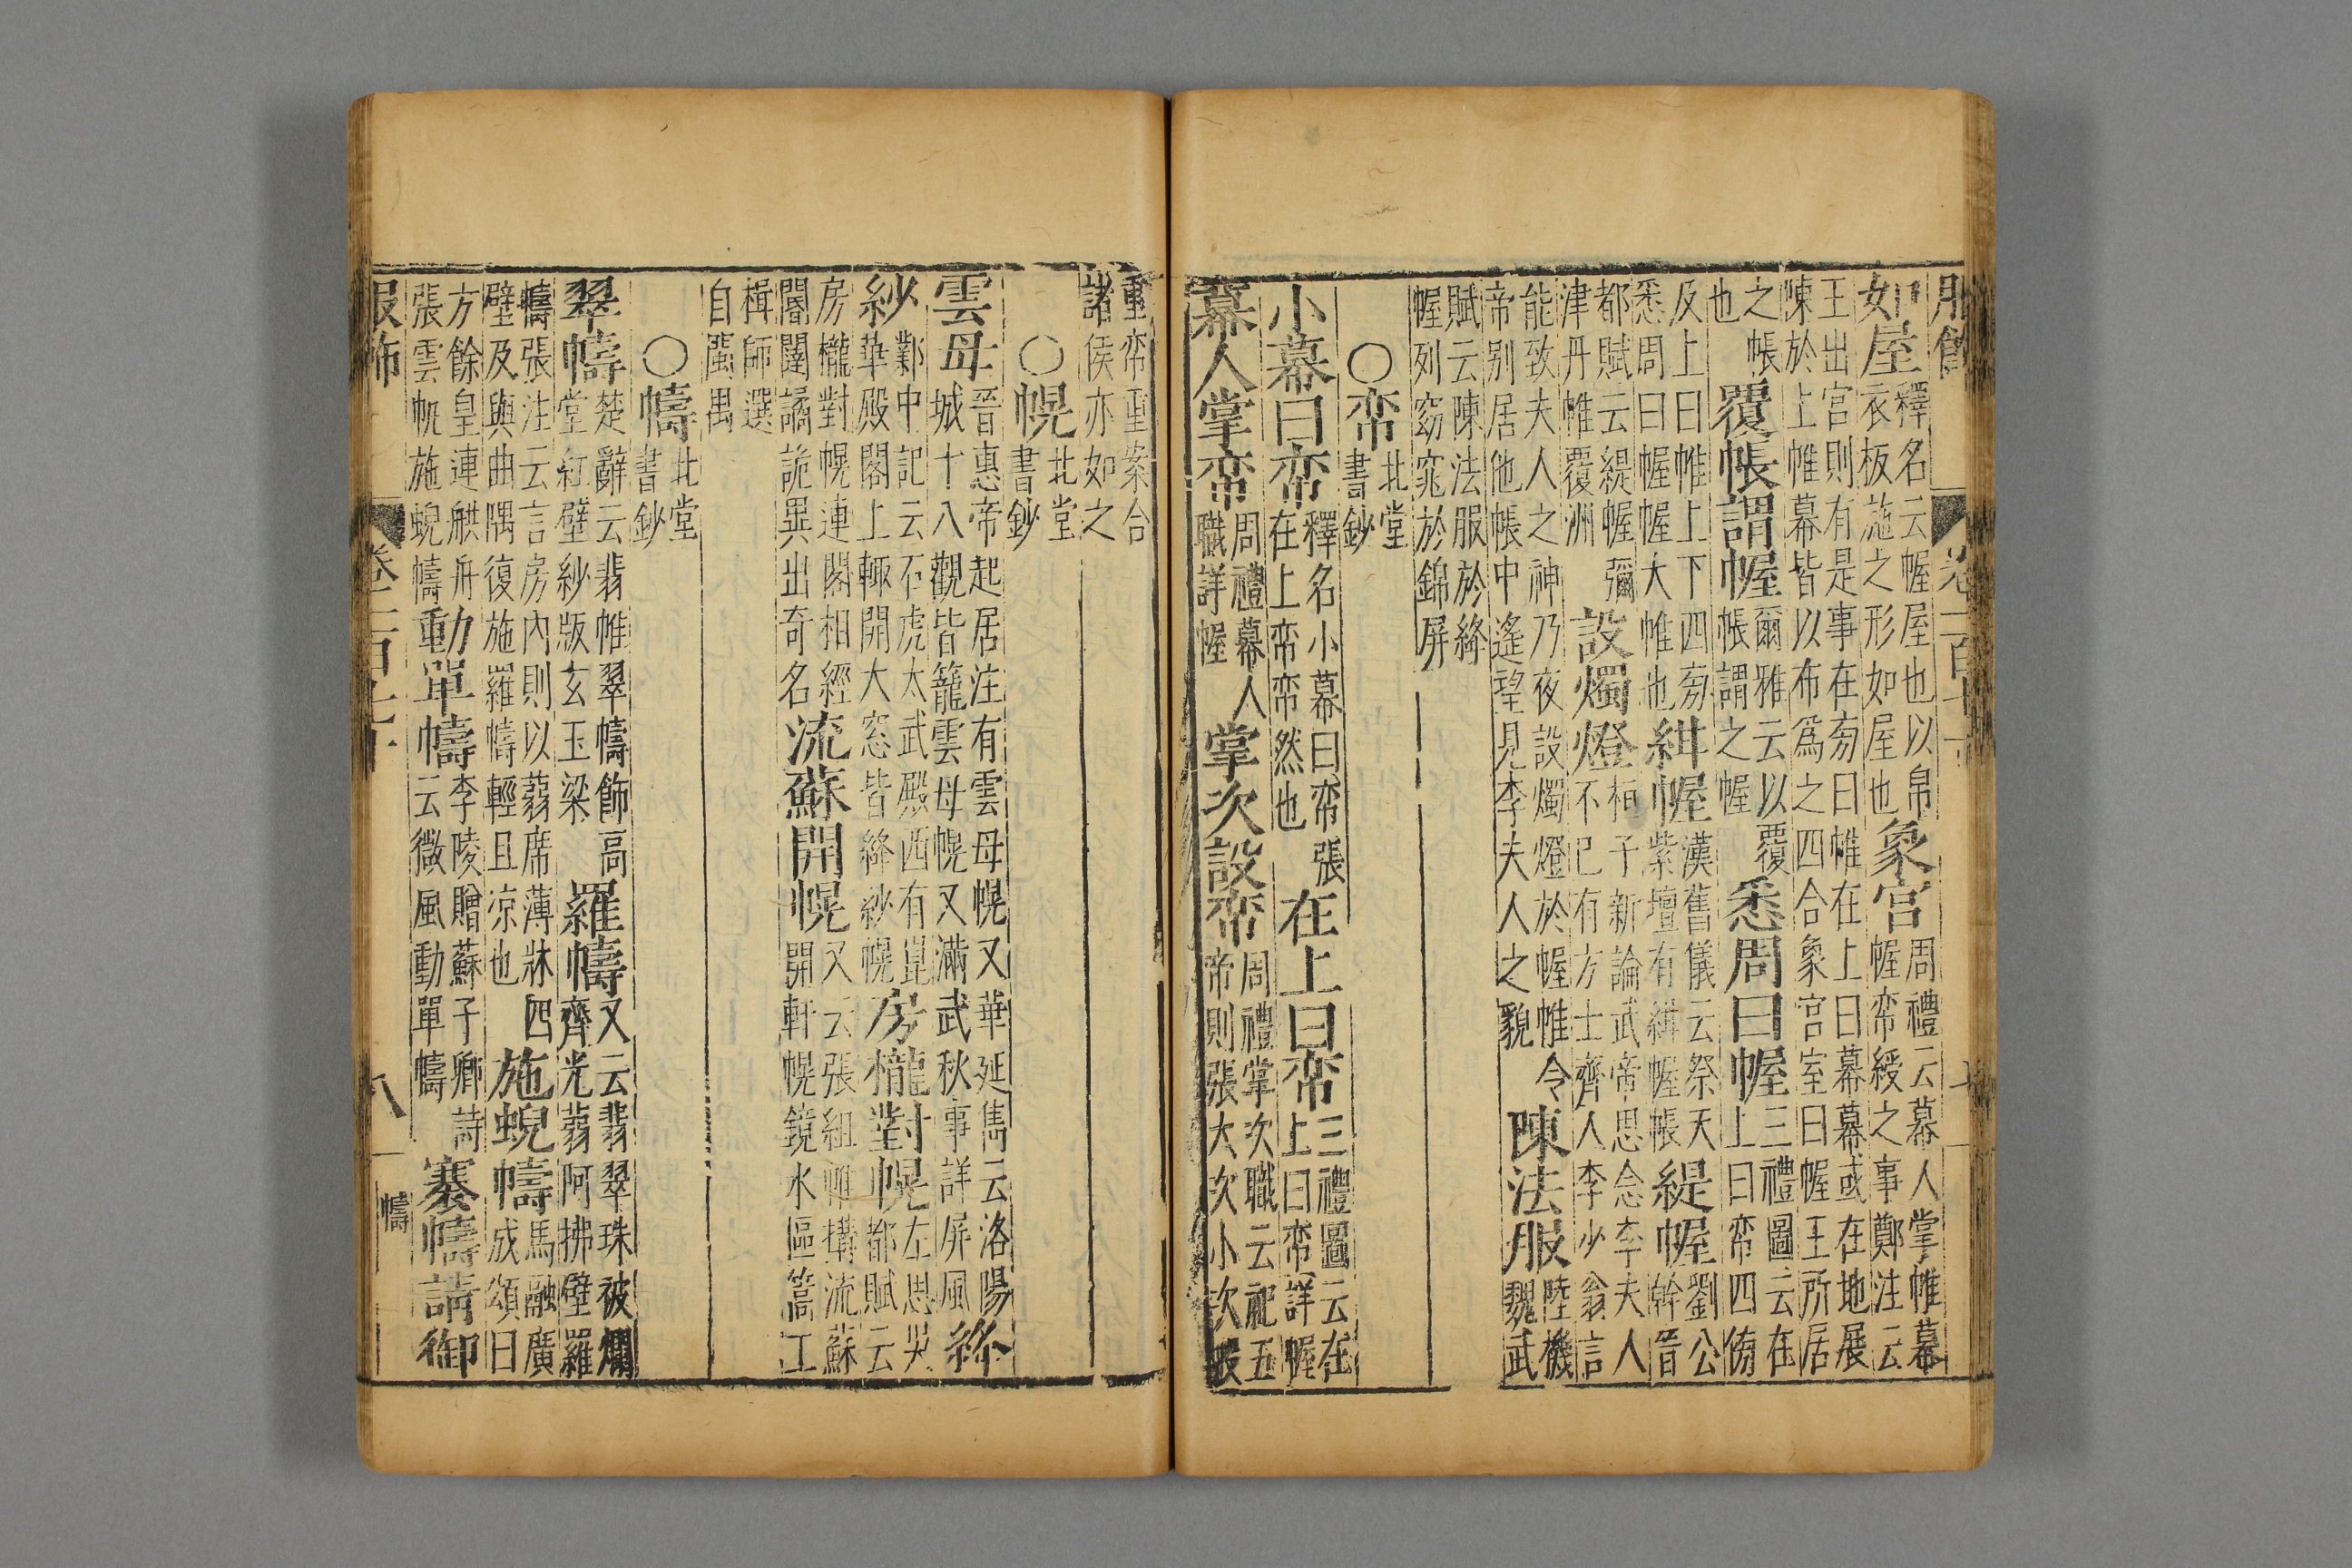 如屋釋名云幄屋也以帛衣板施之形如屋也象宮周禮云幕人掌帷幕幄帟綬之事鄭注云
王出宮則有是事在旁曰帷在上曰幕幕或在地展陳於上帷幕皆以布爲之四合象宮室曰幄王所居
之帳也覆帳謂幄爾雅云以覆帳謂之幄悉周曰幄三禮圖云在上曰帟四傍
及上曰帷上下四旁悉周曰幄幄大帷也緝幄漢舊儀云祭天紫壇有緝幄帳緹幄劉公幹晉
都賦云緹幄彌津丹帷覆洲設燭燈桓子新論武帝思念李夫人不已有方士齊人李少翁言
能致夫人之神乃夜設燭燈於幄帷令帝别居他帳中遙望見李夫人之貌陳法服陸機魏武
賦云陳法服於絳幄列窈窕於錦屏
○帟北堂書鈔
小幕曰帟釋名小幕曰帟張在上帟帟然也在上曰帟三禮圖云在上曰帟詳幄
幕人掌帟周禮幕人職詳幄掌次設帟周禮掌次職云祀五帝則張大次小次設
重帟重案合諸侯亦如之
○幌北堂書鈔
雲母晉惠帝起居注有雲母幌又華延雋云洛陽城十八觀皆籠雲母幌又滿武秋事詳屏風絳
紗鄴中記云石虎太武殿西有崑華殿閣上輙開大窓皆絳紗幌房櫳對幌左思吳都賦云
房櫳對幌連閣相經閽闥譎詭異出奇名流蘇開幌又云張組帷構流蘇開軒幌鏡水區篙工
楫師選自閩禺
○幬北堂書鈔
翠幬楚辭云翡帷翠幬飾高堂紅壁紗版玄玉梁羅幬又云翡翠珠被爛齊光蒻阿拂壁羅
幬張注云言房内則以蒻席薄牀四壁及與曲隅復施羅幬輕且凉也施蜺幬馬融廣成頌曰
方餘皇連舼舟張雲帆施蜺幬動單幬李陵贈蘇子卿詩云微風動單幬褰幬請御
服飾 卷三百七十 八 幬